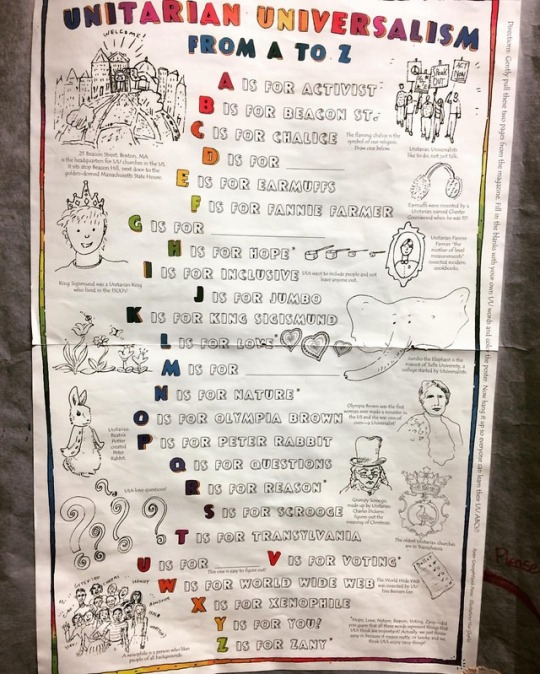 UNITARIAN UNIVERSALISM
FROM A TO Z
WELCOME!
SPEAK OUT
ACT NOW
A IS FOR ACTIVIST
B IS FOR BEACON ST.
C IS FOR CHALICE
The flaming chalice is the
symbol of our religion.
Draw one below.
Unitarian Universalists
like to do, not just talk.
D IS FOR
25 Beacon Street, Boston, MA
is the headquarters for UU churches in the US.
It sits atop Beacon Hill, next door to the
golden-domed Massachusetts State House.
E IS FOR EARMUFFS
Earmuffs were invented by a
Unitarian named Chester
Greenwood when he was 15!
F IS FOR FANNIE FARMER
G IS FOR
H IS FOR HOPE*
Unitarian Fannie
Farmer "the
mother of level
measurements"
invented modern
cookbooks.
I IS FOR INCLUSIVE
UUs want to include people and not
leave anyone out.
King Sigismund was a Unitarian King
who lived in the 1500's!
J IS FOR JUMBO
K IS FOR KING SIGISMUND
L IS FOR LOVE*
Jumbo the Elephant is the
mascot of Tufts University, a
college started by Universalists.
M IS FOR
N IS FOR NATURE*
Olympia Brown was the first
woman ever made a minister in
the US and she was one of
ours—a Universalist!
O IS FOR OLYMPIA BROWN
P IS FOR PETER RABBIT
Unitarian
Beatrix
Potter
created
Peter
Rabbit.
Q IS FOR QUESTIONS
UUs love questions!
R IS FOR REASON*
Grumpy Scrooge,
made up by Unitarian
Charles Dickens,
figures out the
meaning of Christmas.
S IS FOR SCROOGE
T IS FOR TRANSYLVANIA
The oldest Unitarian churches
are in Transylvania.
U IS FOR
This one is easy to figure out!
V IS FOR VOTING*
W IS FOR WORLD WIDE WEB
The World Wide Web
was invented by UU
Tim Berners-Lee
X IS FOR XENOPHILE
A xenophile is a person who likes
people of all backgrounds.
Y IS FOR YOU!
Z IS FOR ZANY*
Directions: Gently pull these two pages from the magazine. Fill in the blanks with your own UU words and color the poster. Now hang it up so everyone can learn their UU ABCs!
Please